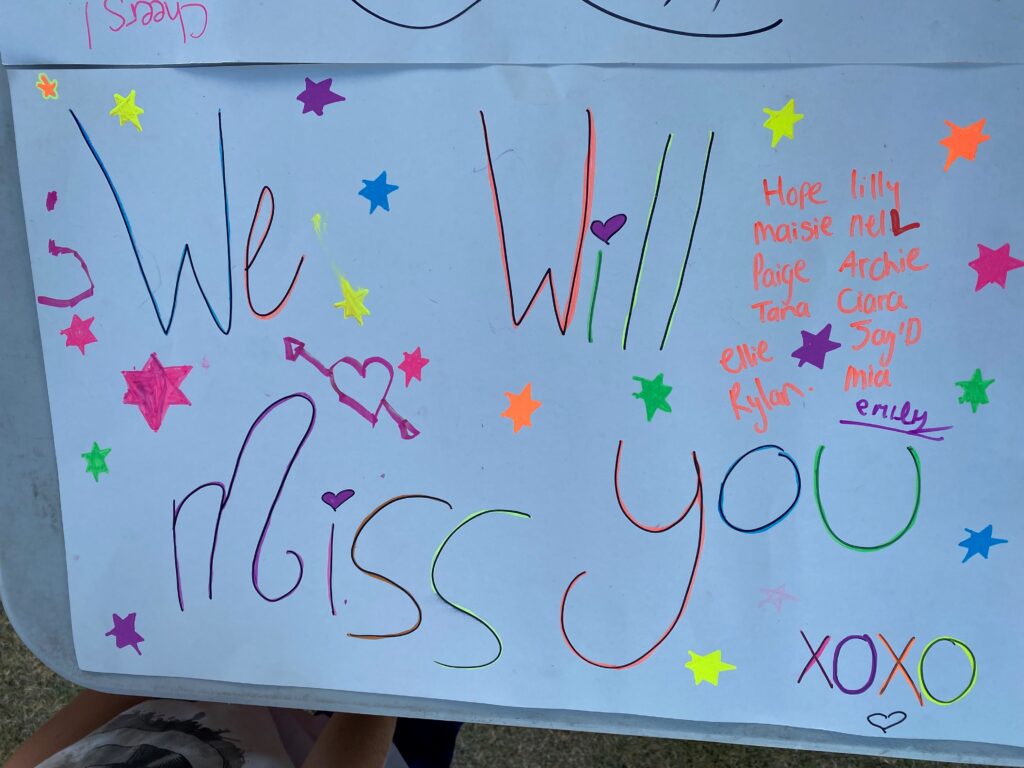 Cheers!
We Will
Hope lilly
maisie nell
Paige Archie
Tana Ciara
ellie Jay'D
Rylan. mia
emily
Miss you
XOXO